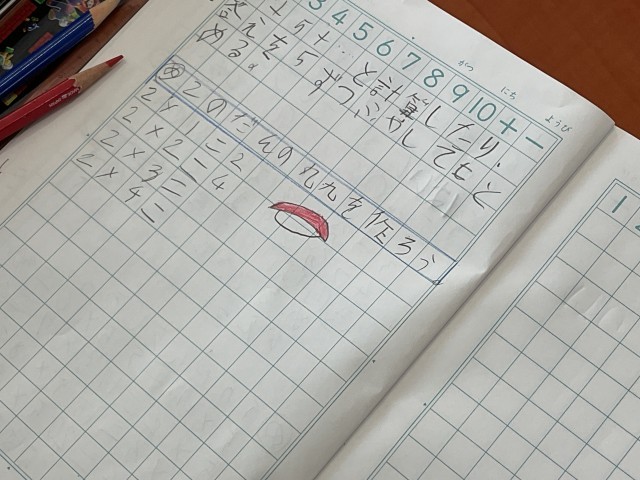 3 4 5 6 7 8 9 10 + −
がつ にち ようび
+5+…と計算したり、
答えを5ずつふやしてもと
める。
め 2のだんの九九を作ろう
2×1=2
2×2=4
2×3=
2×4=
1 2